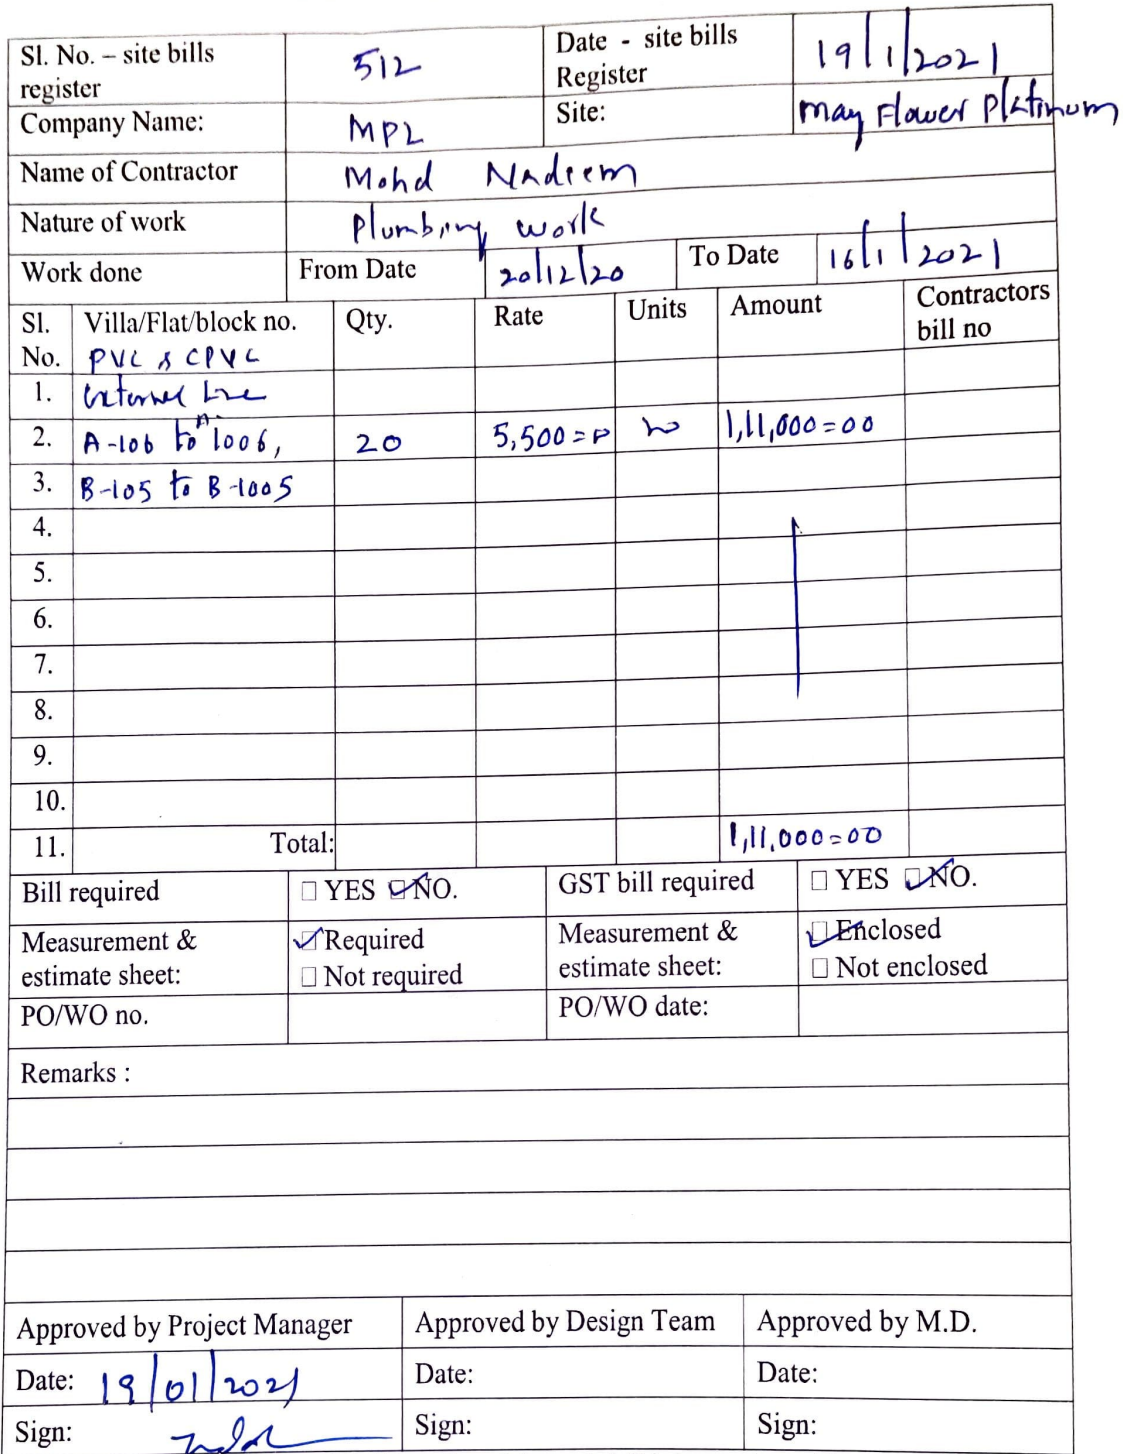 Sl. No. – site bills register 512 Date - site bills Register 19/1/2021
Company Name: MPL Site: May Flower Platinum
Name of Contractor Mohd Nadeem
Nature of work Plumbing work
Work done From Date 20/12/20 To Date 16/1/2021
Sl. No. Villa/Flat/block no. Qty. Rate Units Amount Contractors bill no
PVC & CPVC
1. External Line
2. A-106 to A-1006, 20 5,500=00 1,11,000=00
3. B-105 to B-1005
4.
5.
6.
7.
8.
9.
10.
11. Total: 1,11,000=00
Bill required ☐ YES ☑ NO. GST bill required ☐ YES ☑ NO.
Measurement & estimate sheet: ☑ Required Measurement & estimate sheet: ☑ Enclosed
☐ Not required ☐ Not enclosed
PO/WO no. PO/WO date:
Remarks :
Approved by Project Manager Approved by Design Team Approved by M.D.
Date: 19/01/2021 Date: Date:
Sign: Sign: Sign: